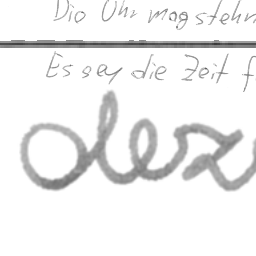 Die Uhr mag stehn
Es sey die Zeit f
dez